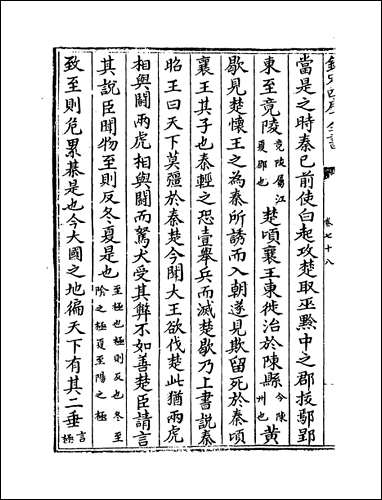 欽定四庫全書
卷七十八
當是之時秦已前使白起攻楚取巫黔中之郡拔鄢郢
東至竟陵竟陵屬江夏郡也楚頃襄王東徙治於陳縣今陳州也黄
歇見楚懷王之為秦所誘而入朝遂見欺留死於秦頃
襄王其子也秦輕之恐壹舉兵而滅楚歇乃上書說秦
昭王曰天下莫彊於秦楚今聞大王欲伐楚此猶兩虎
相與鬭兩虎相與鬭而駑犬受其弊不如善楚臣請言
其說臣聞物至則反冬夏是也至極也極則反也冬至陰之極夏至陽之極
致至則危累棊是也今大國之地徧天下有其二垂言極